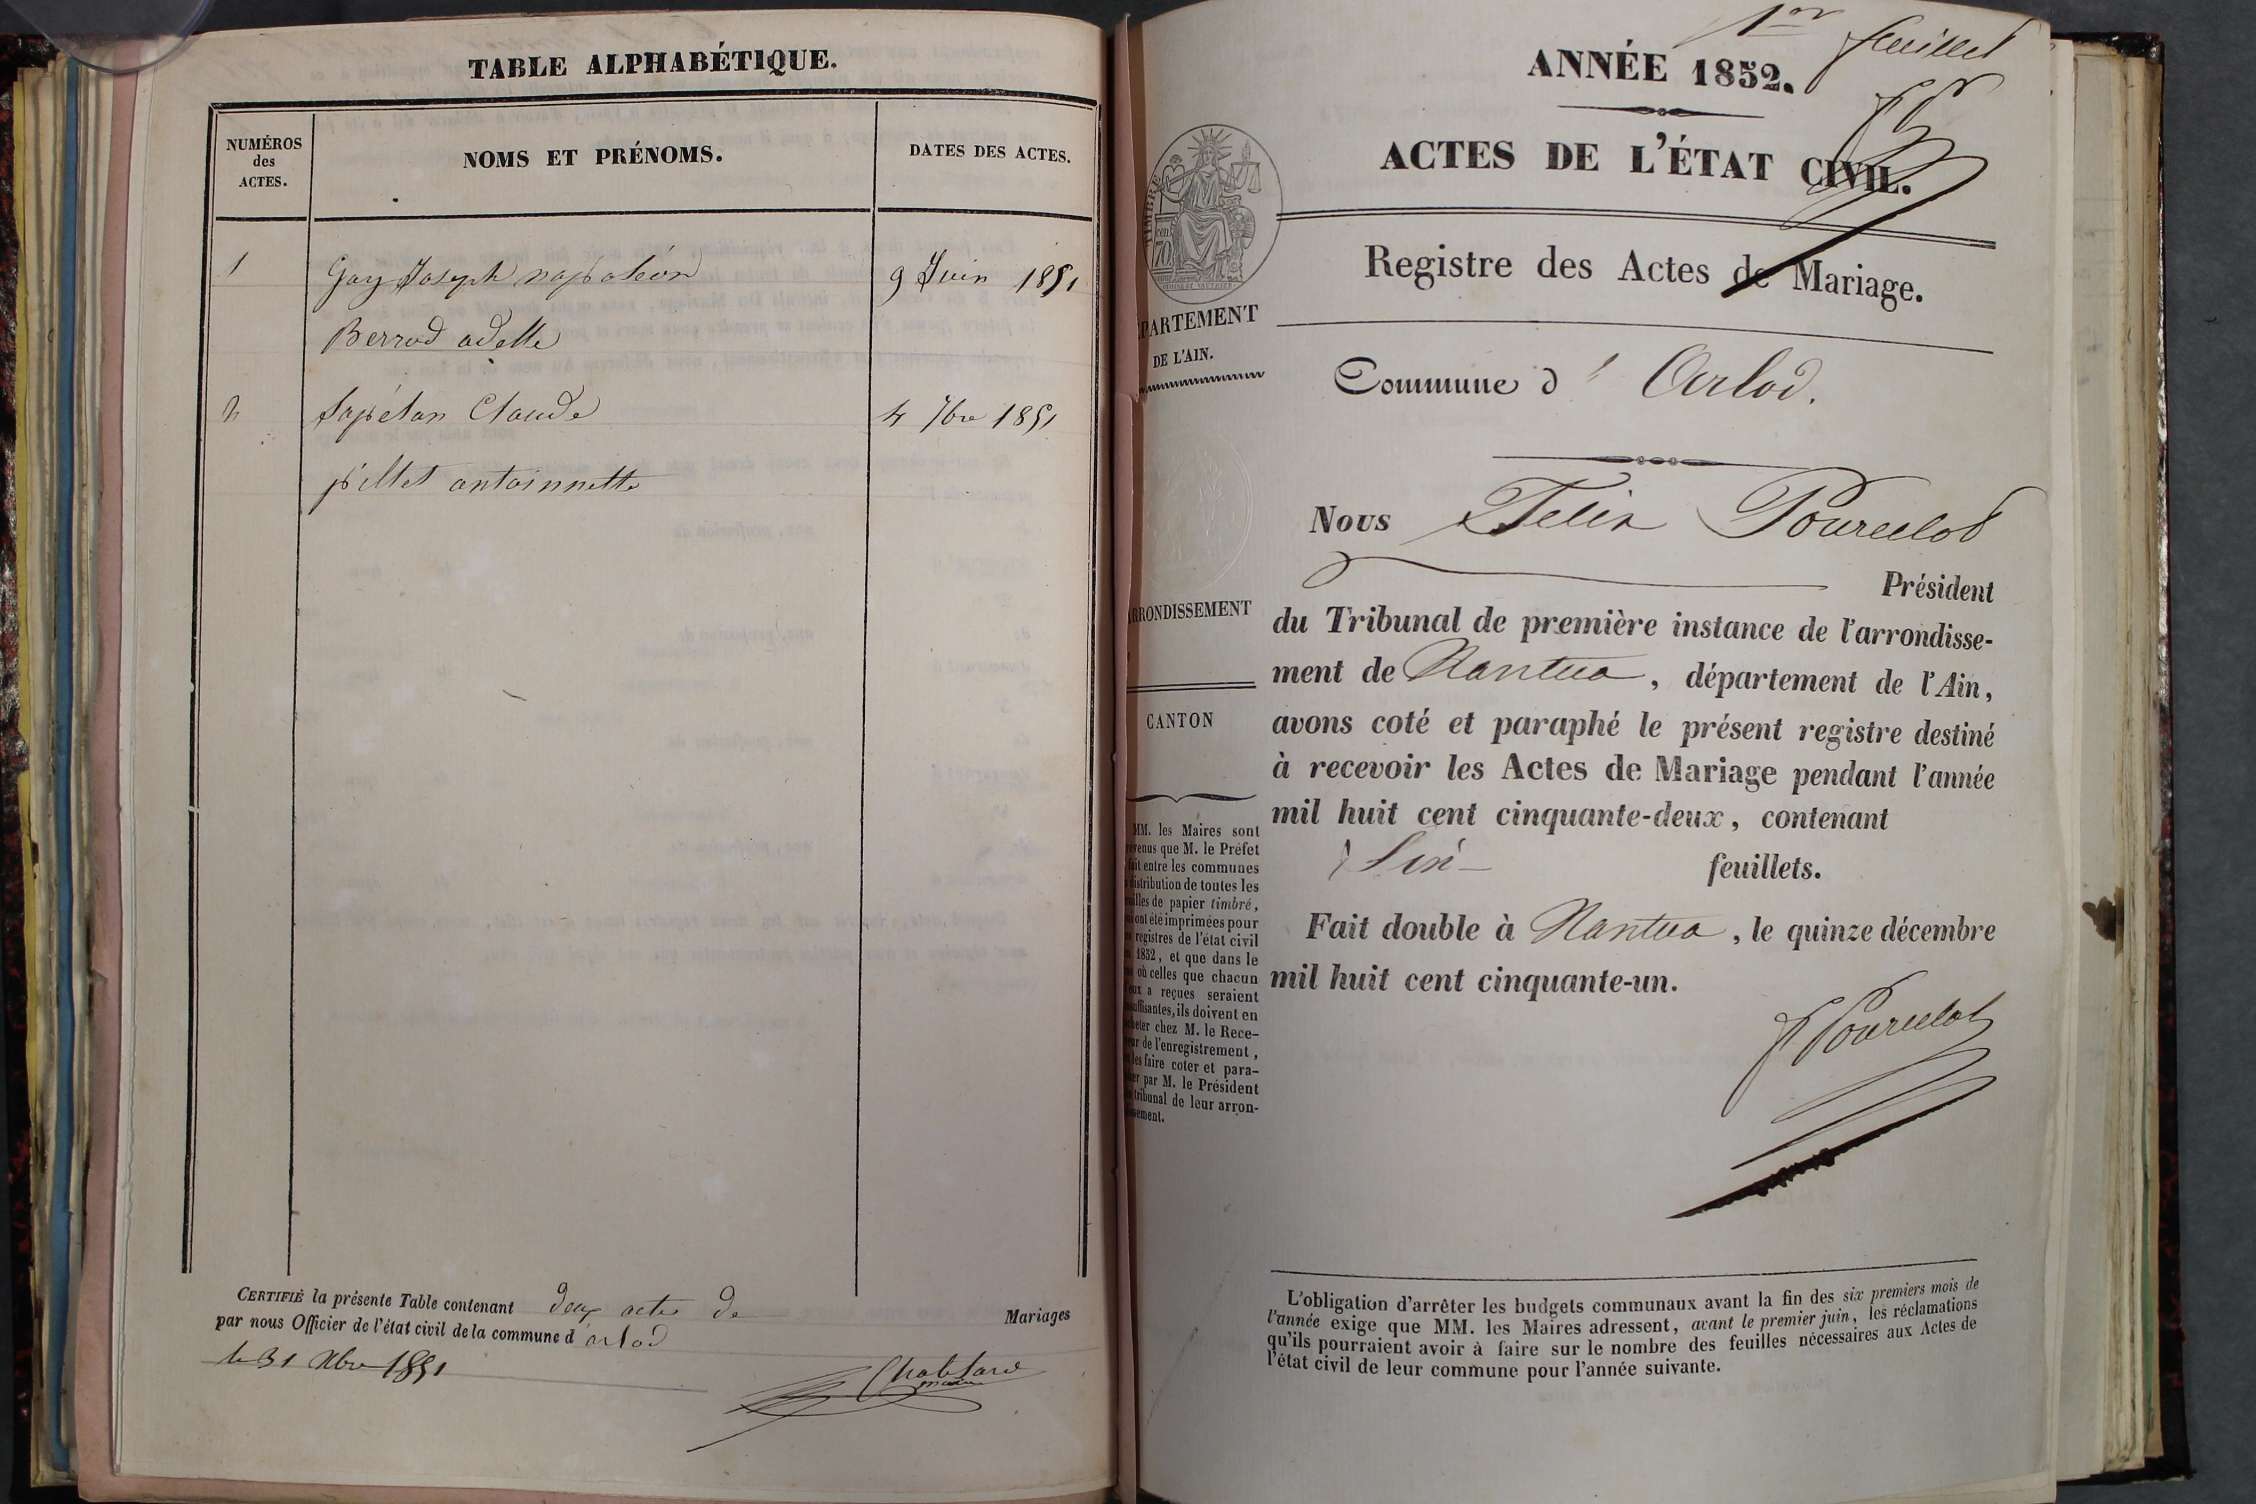 TABLE ALPHABÉTIQUE.
NUMÉROS
des
ACTES.
NOMS ET PRÉNOMS.
DATES DES ACTES.
1 Gay Joseph napoléon 9 Juin 1851
Berrod adelle
2 Lapétan Claude 4 7bre 1851
pillet antoinnette
CERTIFIÉ la présente Table contenant deux actes de Mariages
par nous Officier de l'état civil de la commune d'arlod
le 31 Xbre 1851
maire
1er feuillet
ANNÉE 1852.
ACTES DE L'ÉTAT CIVIL.
Registre des Actes de Mariage.
TIMBRE
70 cen
PARTEMENT
DE L'AIN.
Commune d'Arlod.
Nous Felix Pourcelot
Président
du Tribunal de première instance de l'arrondisse-
ment de Nantua, département de l'Ain,
avons coté et paraphé le présent registre destiné
à recevoir les Actes de Mariage pendant l'année
mil huit cent cinquante-deux, contenant
Six feuillets.
Fait double à Nantua, le quinze décembre
mil huit cent cinquante-un.
F Pourcelot
RRONDISSEMENT
CANTON
MM. les Maires sont
venus que M. le Préfet
fait entre les communes
distribution de toutes les
illes de papier timbré,
ont été imprimées pour
registres de l'état civil
1852, et que dans le
où celles que chacun
eux a reçues seraient
suffisantes, ils doivent en
heter chez M. le Rece-
ur de l'enregistrement,
les faire coter et para-
er par M. le Président
tribunal de leur arron-
ssement.
L'obligation d'arrêter les budgets communaux avant la fin des six premiers mois de
l'année exige que MM. les Maires adressent, avant le premier juin, les réclamations
qu'ils pourraient avoir à faire sur le nombre des feuilles nécessaires aux Actes de
l'état civil de leur commune pour l'année suivante.